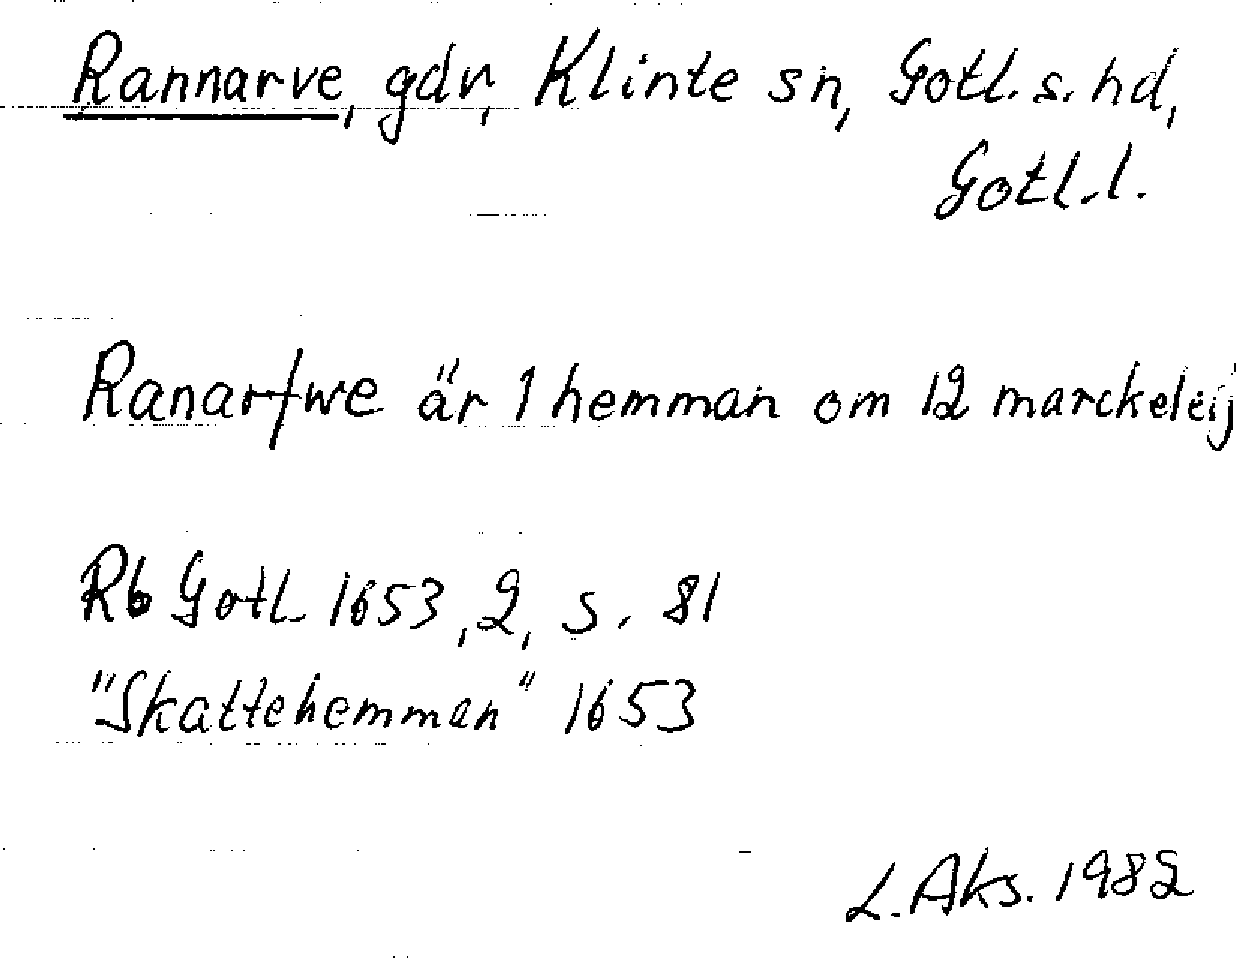 Rannarve, gdr, Klinte sn, Gotl. s. hd,
Gotl. l.
Ranarfwe är 1 hemman om 12 marckeleij
Rb Gotl 1653, 2, s. 81
"Skattehemman" 1653
L. Aks. 1982